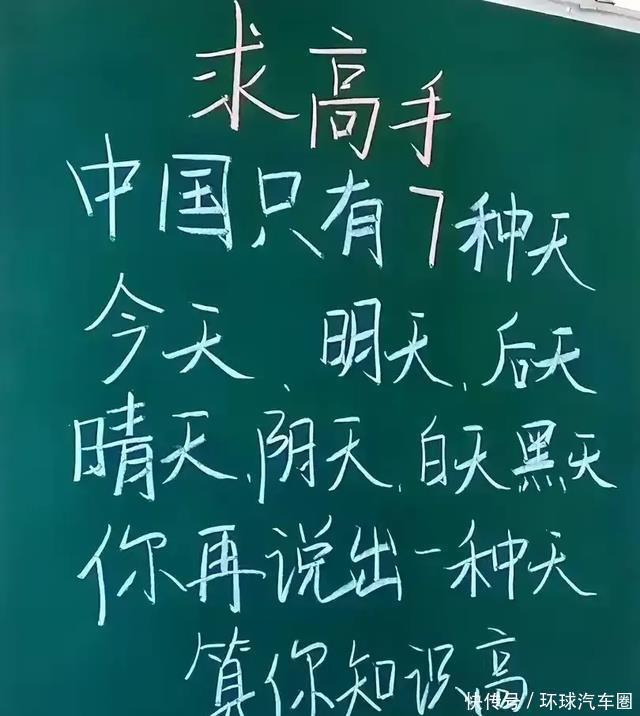 求高手
中国只有7种天
今天、明天、后天
晴天、阴天、白天黑天
你再说出一种天
算你知识高
快传号/环球汽车圈